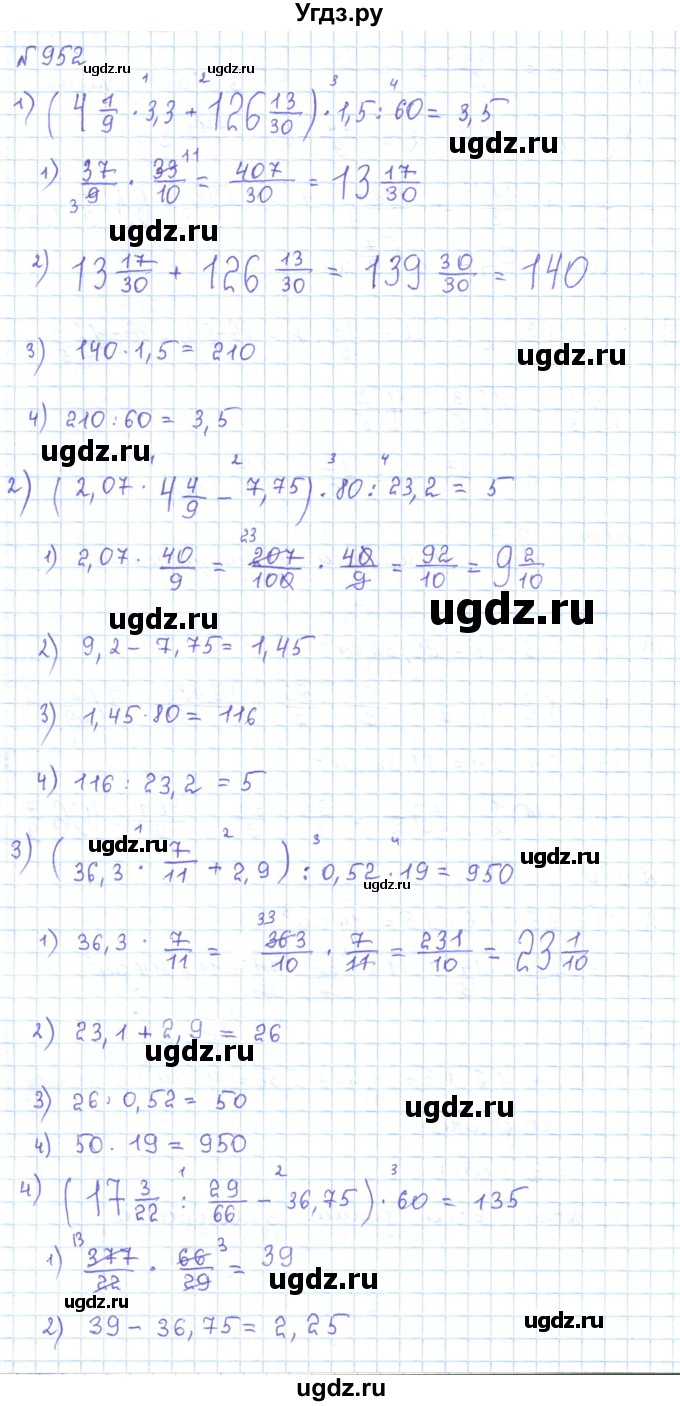 Угдз.ру
№ 952
ugdz.ru ugdz.ru
1 2 3 4
1) (4 1/9 · 3,3 + 126 13/30) · 1,5 : 60 = 3,5
ugdz.ru
1) 37/9 · 33/10 = 407/30 = 13 17/30
3 11
ugdz.ru
2) 13 17/30 + 126 13/30 = 139 30/30 = 140
3) 140 · 1,5 = 210
ugdz.ru
4) 210 : 60 = 3,5
ugdz.ru
1 2 3 4
2) (2,07 · 4 4/9 - 7,75) · 80 : 23,2 = 5
23
1) 2,07 · 40/9 = 207/100 · 40/9 = 92/10 = 9 2/10
ugdz.ru ugdz.ru
2) 9,2 - 7,75 = 1,45
3) 1,45 · 80 = 116
4) 116 : 23,2 = 5
ugdz.ru
1 2 3 4
3) (36,3 · 7/11 + 2,9) : 0,52 · 19 = 950
ugdz.ru
ugdz.ru
33
1) 36,3 · 7/11 = 363/10 · 7/11 = 231/10 = 23 1/10
2) 23,1 + 2,9 = 26
ugdz.ru
3) 26 : 0,52 = 50
ugdz.ru
4) 50 · 19 = 950
1 2 3
4) (17 3/22 : 29/66 - 36,75) · 60 = 135
13 3
1) 377/22 · 66/29 = 39
ugdz.ru ugdz.ru
2) 39 - 36,75 = 2,25
ugdz.ru
ugdz.ru